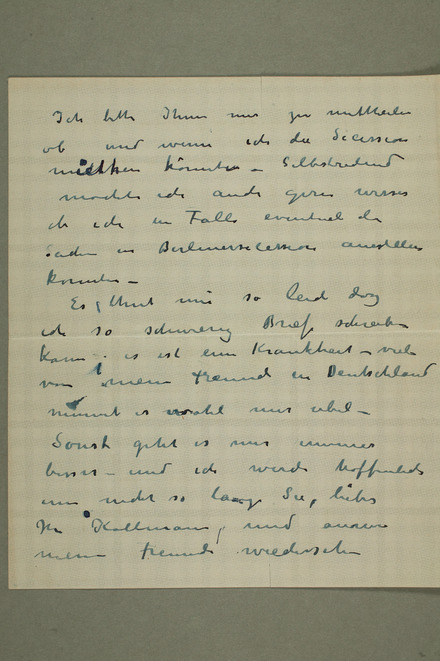 Ich bitte Ihnen mir zu mittheilen
ob und wenn ich die Secession
miethen könnte – Selbstredend
mochte ich auch gern wissen
ob ich im Falle eventuel die
in Berlinersecession austellen
konnte –
Es thut mir so leid das
ich so schwierig Brief schreiben
kann – es ist ein Krankheit – viele
von meine Freunde in Deutschland
nimmt es wohl mir ubel –
Sonst geht es mir immer
besser – und ich werde hoffentlich
nun nicht so lange Sie, liebes
Hr Kollmann, und andere
meine Freunde wiedersehen